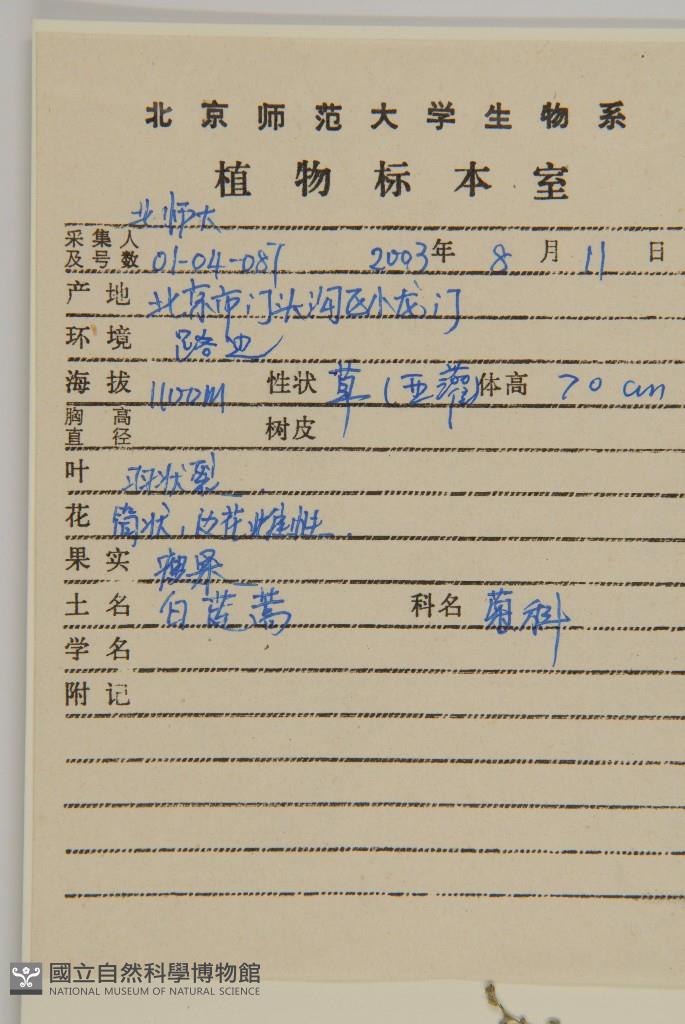 北京师范大学生物系
植物标本室
北师大
采集人
及号数 01-04-087 2003年 8月 11日
产地 北京市门头沟区小龙门
环境 路边
海拔 1100M 性状 草(亚灌) 体高 70 cm
胸高
直径 树皮
叶 羽状裂
花 筒状,边花雌性.
果实 瘦果
土名 白莲蒿 科名 菊科
学名
附记
國立自然科學博物館
NATIONAL MUSEUM OF NATURAL SCIENCE